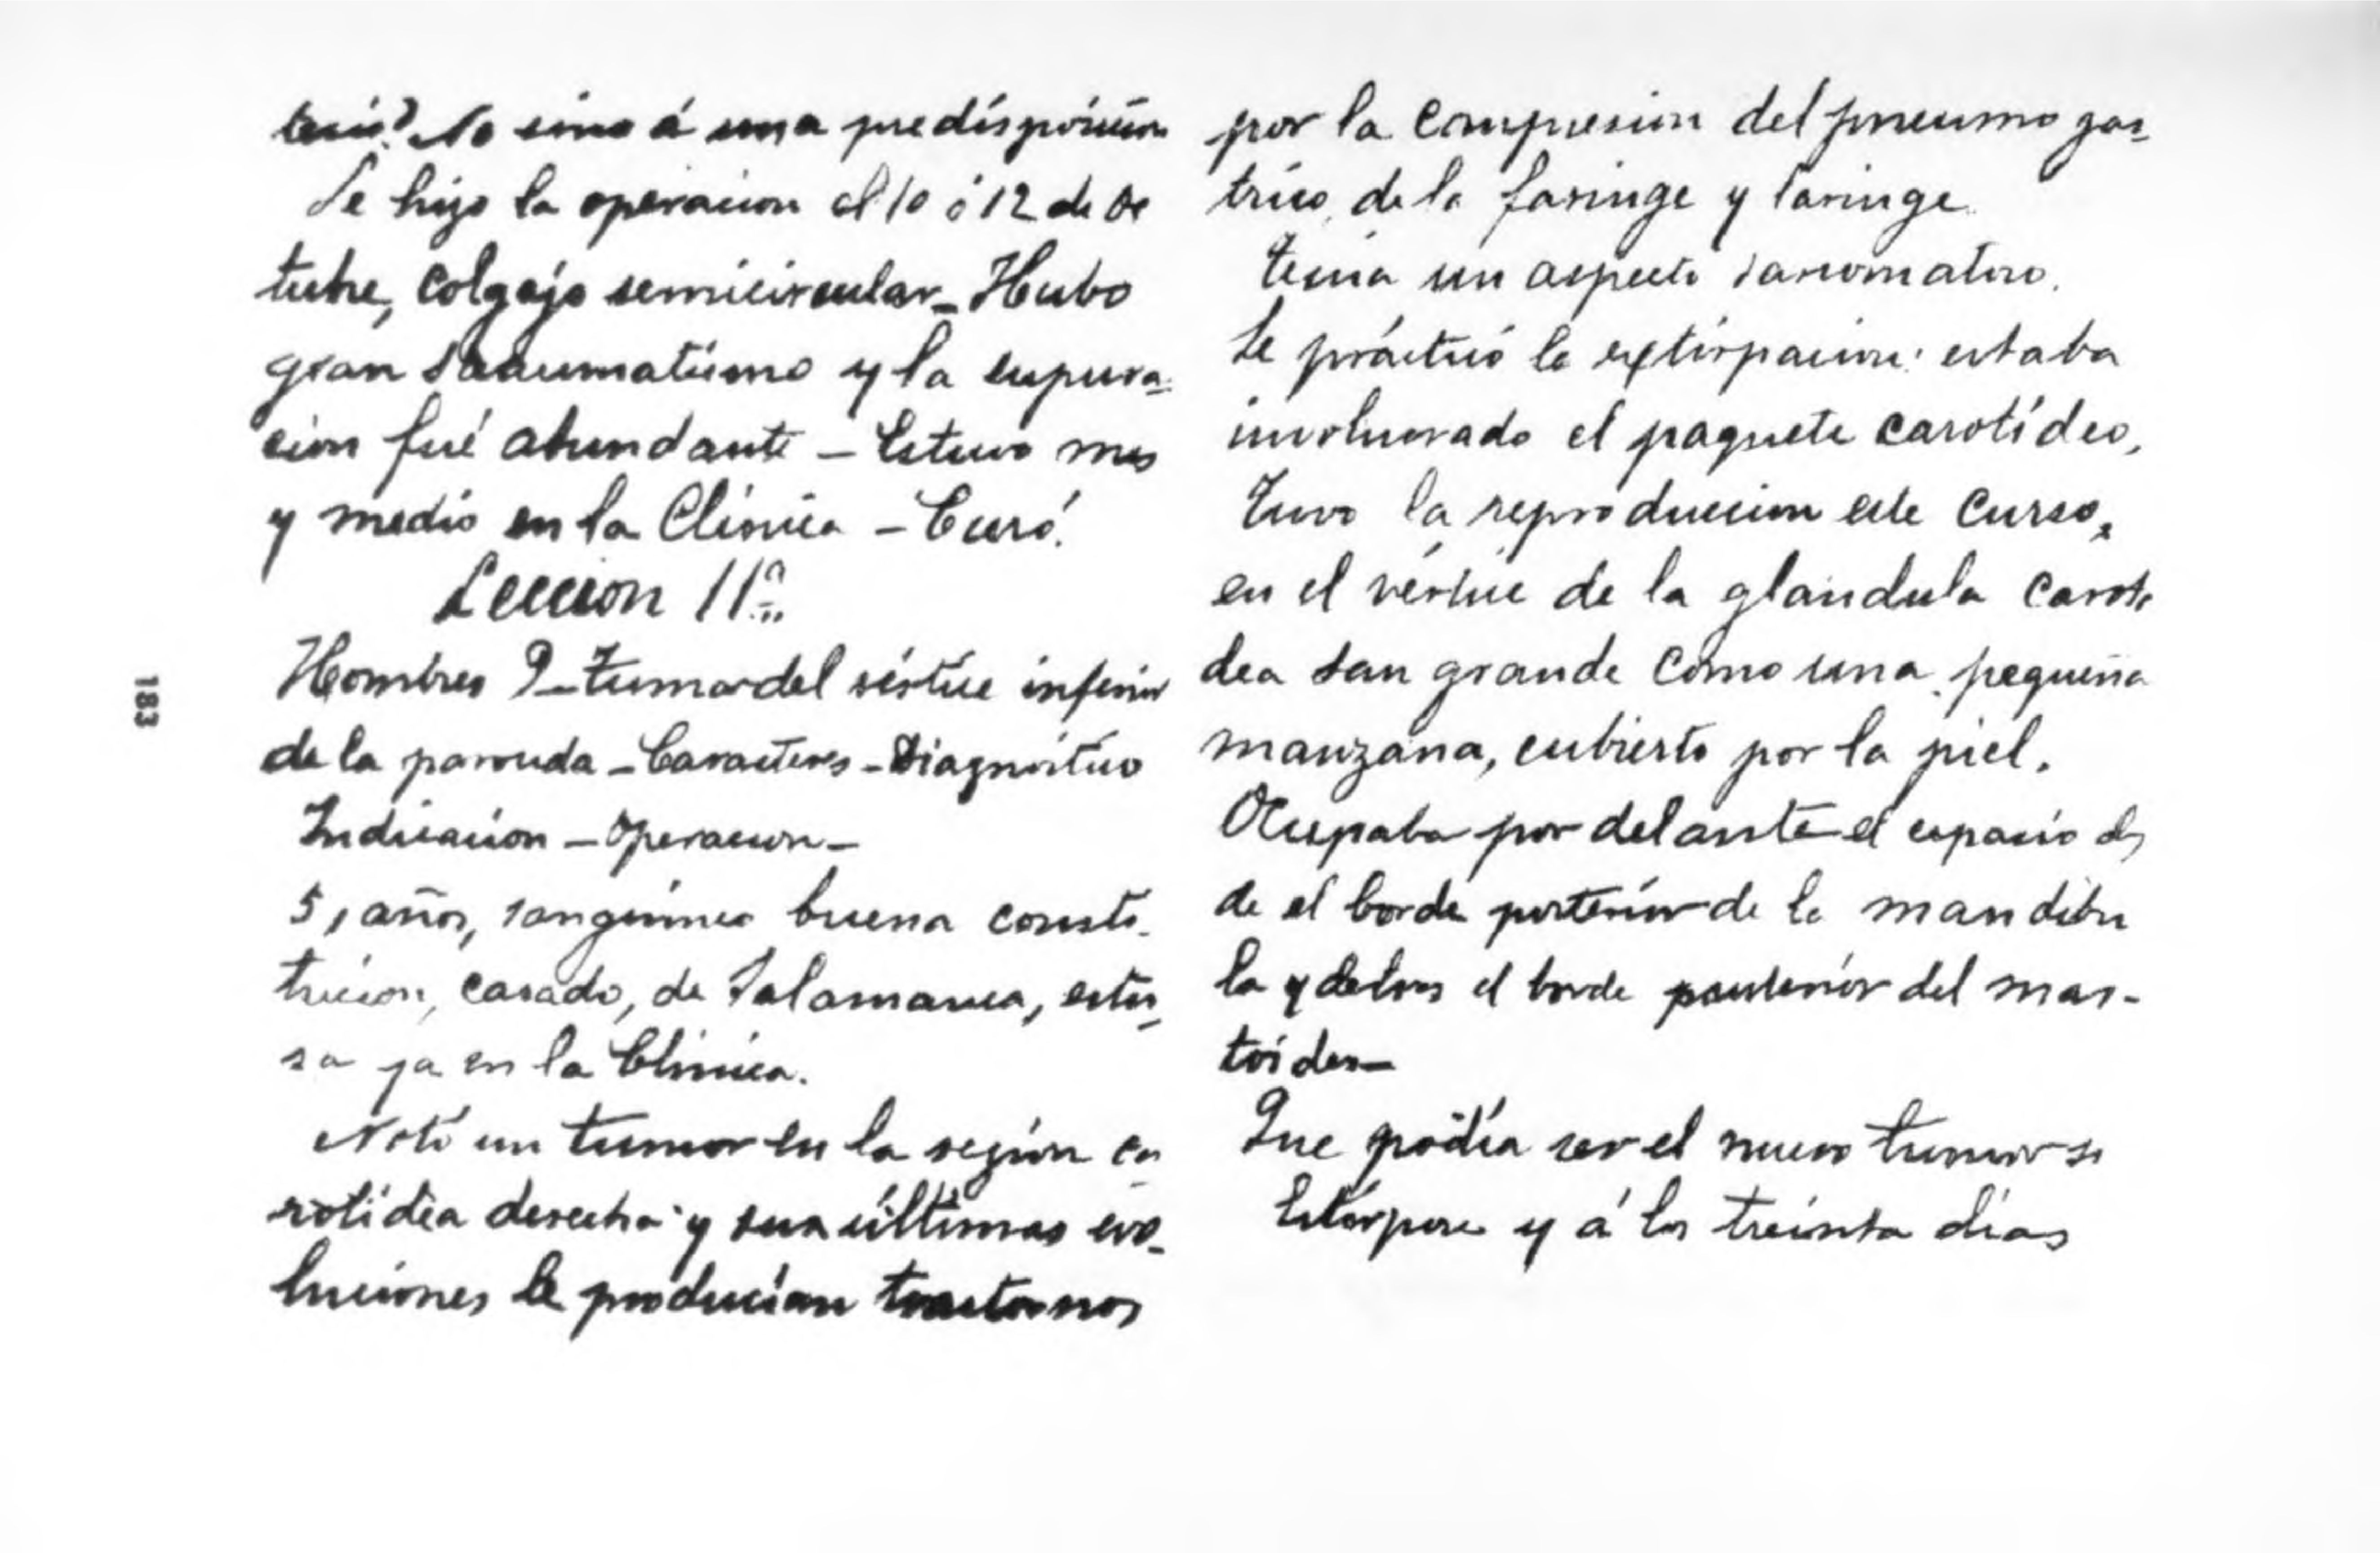 tesis? No sino á una predisposicion
Se hizo la operacion el 10 ó 12 de Oc
tubre, colgajo semicircular_ Hubo
gran traumatismo y la supura=
cion fué abundante – Estuvo mes
y medio en la Clínica – Curó.
Leccion 11ª
Hombres 9_ tumor del vértice inferior
de la parotida – Caracteres – Diagnóstico
Indicacion – Operacion –
51 años, sanguineo buena consti-
tucion, casado, de Salamanca, estu_
ya en la Clinica.
Notó un tumor en la región ca
rotídea derecha y sus últimas evo-
luciones le producían trastornos
por la compresion del pneumo gas_
trico, de la faringe y laringe
tenia un aspecto sarcomatoso.
Se práctico la extirpacion: estaba
involucrado el paquete carotídeo,
Tuvo la reproduccion este Curso,
en el vértice de la glandula caroti
dea tan grande como una pequeña
manzana, cubierto por la piel.
Ocupaba por delante el espacio des
de el borde posterior de la mandibu
la y detras el borde posterior del mas-
toides –
Que podía ser el nuevo tumor si
y á los treinta dias
183